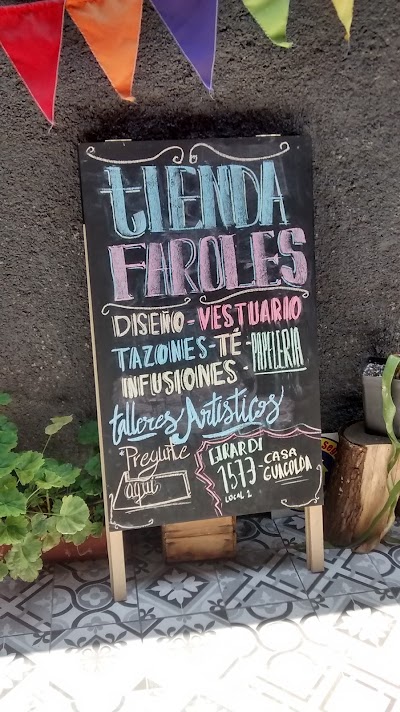 tIENDA
FAROLES
DISEÑO - VESTUARIO
TAZONES - TÉ - PAPELERIA
INFUSIONES -
talleres Artísticos
Pregunte
aquí
GIRARDI
1573 - CASA
GUACOLDA
LOCAL 1